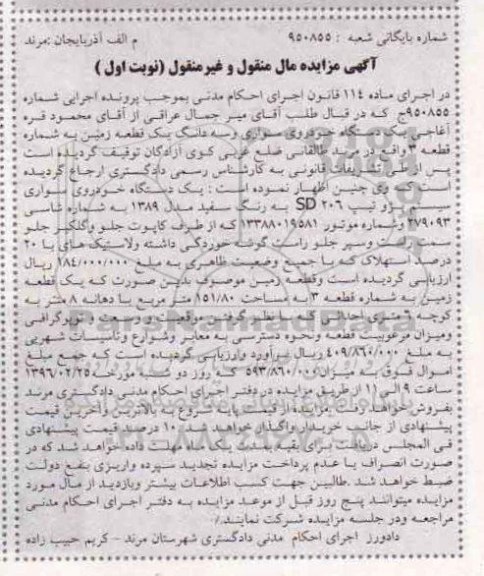 شماره بایگانی شعبه : ۹۵۰۸۵۵ م الف آذربایجان :مرند
آگهی مزایده مال منقول و غیرمنقول (نوبت اول )
در اجرای ماده ۱۱۴ قانون اجرای احکام مدنی بموجب پرونده اجرایی شماره
۹۵۰۸۵۵ج که در قبال طلب آقای میر جمال عراقی از آقای محمود قره
آغاجی یک دستگاه خودروی سواری وسه دانگ یک قطعه زمین به شماره
قطعه ۳ واقع در مرند طالقانی ضلع غربی کوی آزادگان توقیف گردیده است
پس از طی تشریفات قانونی به کارشناس رسمی دادگستری ارجاع گردیده
است که وی چنین اظهار نموده است : یک دستگاه خودروی سواری
سیستم پژو تیپ ۲۰۶ SD به رنگ سفید مدل ۱۳۸۹ به شماره شاسی
۲۷۹۰۹۳ وشماره موتور ۱۳۳۸۸۰۱۹۵۸۱ که از طرف کاپوت جلو وگلگیر جلو
سمت راست وسپر جلو راست گوشه خوردگی داشته ولاستیک های با ۲۰
درصد استهلاک که با جمیع وضعیت ظاهری به مبلغ ۱۸۴/۰۰۰/۰۰۰ ریال
ارزیابی گردیده است وقطعه زمین موصوف بدین صورت که یک قطعه
زمین به شماره قطعه ۳ به مساحت ۱۵۱/۸۰ متر مربع با دهانه ۸ متر به
کوچه ۶ متری احداثی که با نظر گرفتن موقعیت و وسعت و توپوگرافی
ومیزان مرغوبیت قطعه ونحوه دسترسی به معابر وشوارع وتأسیسات شهری
به مبلغ ۴۰۹/۸۶۰/۰۰۰ ریال برآورد وارزیابی گردیده است که جمع مبلغ
اموال فوق به میزان ۵۹۳/۸۶۰/۰۰۰ که روز دو شنبه مورخه ۱۳۹۶/۰۲/۲۵
ساعت ۹ الی ۱۱ از طریق مزایده در دفتر اجرای احکام مدنی دادگستری مرند
بفروش خواهد رفت مزایده از قیمت پایه شروع به بالاترین وآخرین قیمت
پیشنهادی از جانب خریدار واگذار خواهد شد ۱۰ درصد قیمت پیشنهادی
فی المجلس دریافت برای بقیه بمدت یک ماه مهلت داده خواهد شد که در
صورت انصراف یا عدم پرداخت مزایده تجدید سپرده واریزی بنفع دولت
ضبط خواهد شد .طالبین جهت کسب اطلاعات بیشتر وبازدید از مال مورد
مزایده میتوانند پنج روز قبل از موعد مزایده به دفتر اجرای احکام مدنی
مراجعه ودر جلسه مزایده شرکت نمایند./
دادورز اجرای احکام مدنی دادگستری شهرستان مرند - کریم حبیب زاده